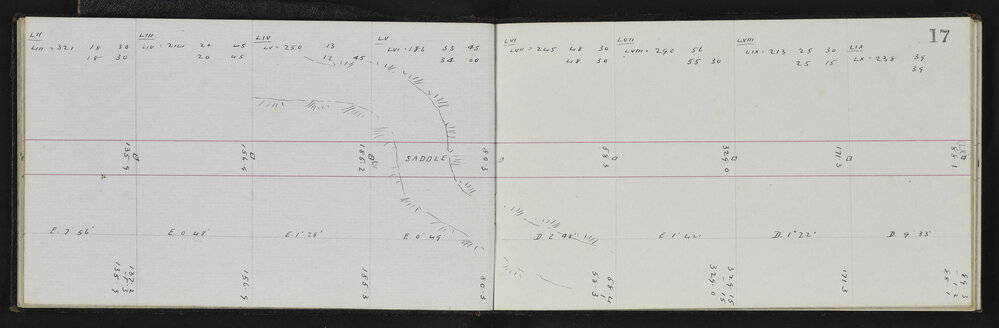 17
LII
LIII = 321 18 30
18 30
LIII
LIV = 214 20 45
20 45
LIV
LV = 250 13
12 45
LV
LVI = 186 33 45
34 00
LVI
LVII = 245 48 30
48 30
LVII
LVIII = 290 56
55 30
LVIII
LIX = 213 25 30
25 15
LIX
LX = 238 39
39
135.9
156.9
185.2
LV
SADDLE
80.3
58.3
329.0
171.3
LX
58.1
E. 7° 56'
E. 0° 48'
E. 1° 28'
E. 0° 49'
D. 2° 48'
E. 1° 42'
D. 1° 22'
D. 9° 33'
135.9
156.9
185.3
80.3
58.3
329.15
329.0
171.3
59.3
1.2
58.1